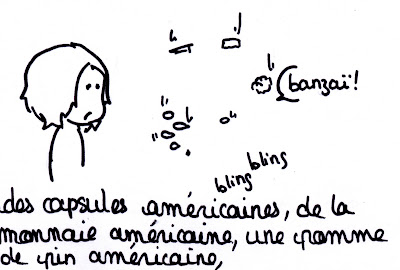 banzaï!
bling bling
des capsules américaines, de la
monnaie américaine, une pomme
de pin américaine,